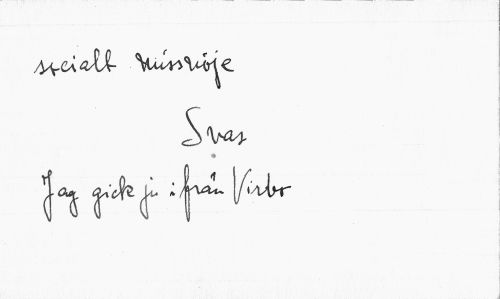 socialt missnöje
Svas
Jag gick ju ifrån Virbo